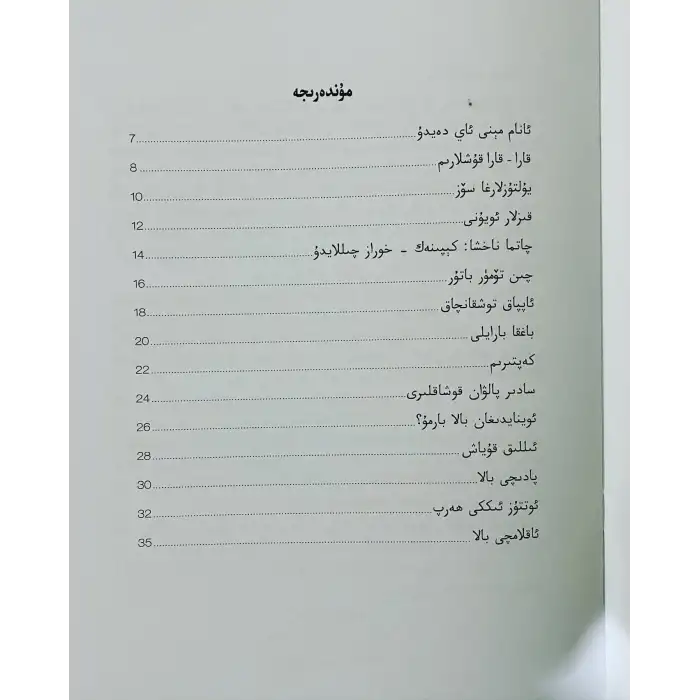 مۇندەرىجە
ئانام مېنى ئاي دەيدۇ 7
قارا - قارا قۇشلارىم 8
يۇلتۇزلارغا سۆز 10
قىزلار ئويۇنى 12
چاتما ناخشا: كېپىنەك - خوراز چىللايدۇ 14
چىن تۆمۈر باتۇر 16
ئاپپاق توشقانچاق 18
باغقا بارايلى 20
كەپتىرىم 22
سادىر پالۋان قوشاقلىرى 24
ئوينايدىغان بالا بارمۇ؟ 26
ئىللىق قۇياش 28
پادىچى بالا 30
ئوتتۇز ئىككى ھەرپ 32
ئاقلامچى بالا 35